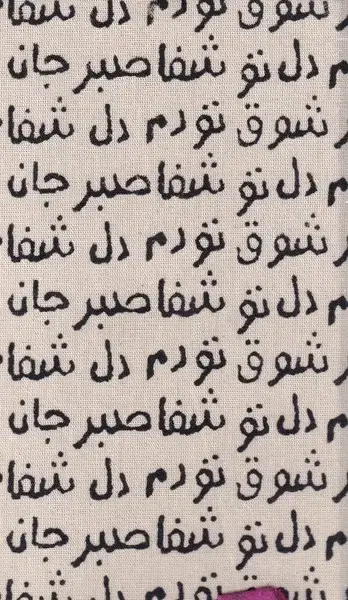 شوق تو دم دل شفا
م دل تو شفا صبر جان
شوق تو دم دل شفا
م دل تو شفا صبر جان
شوق تو دم دل شفا
م دل تو شفا صبر جان
شوق تو دم دل شفا
م دل تو شفا صبر جان
شوق تو دم دل شفا
م دل تو شفا صبر جان